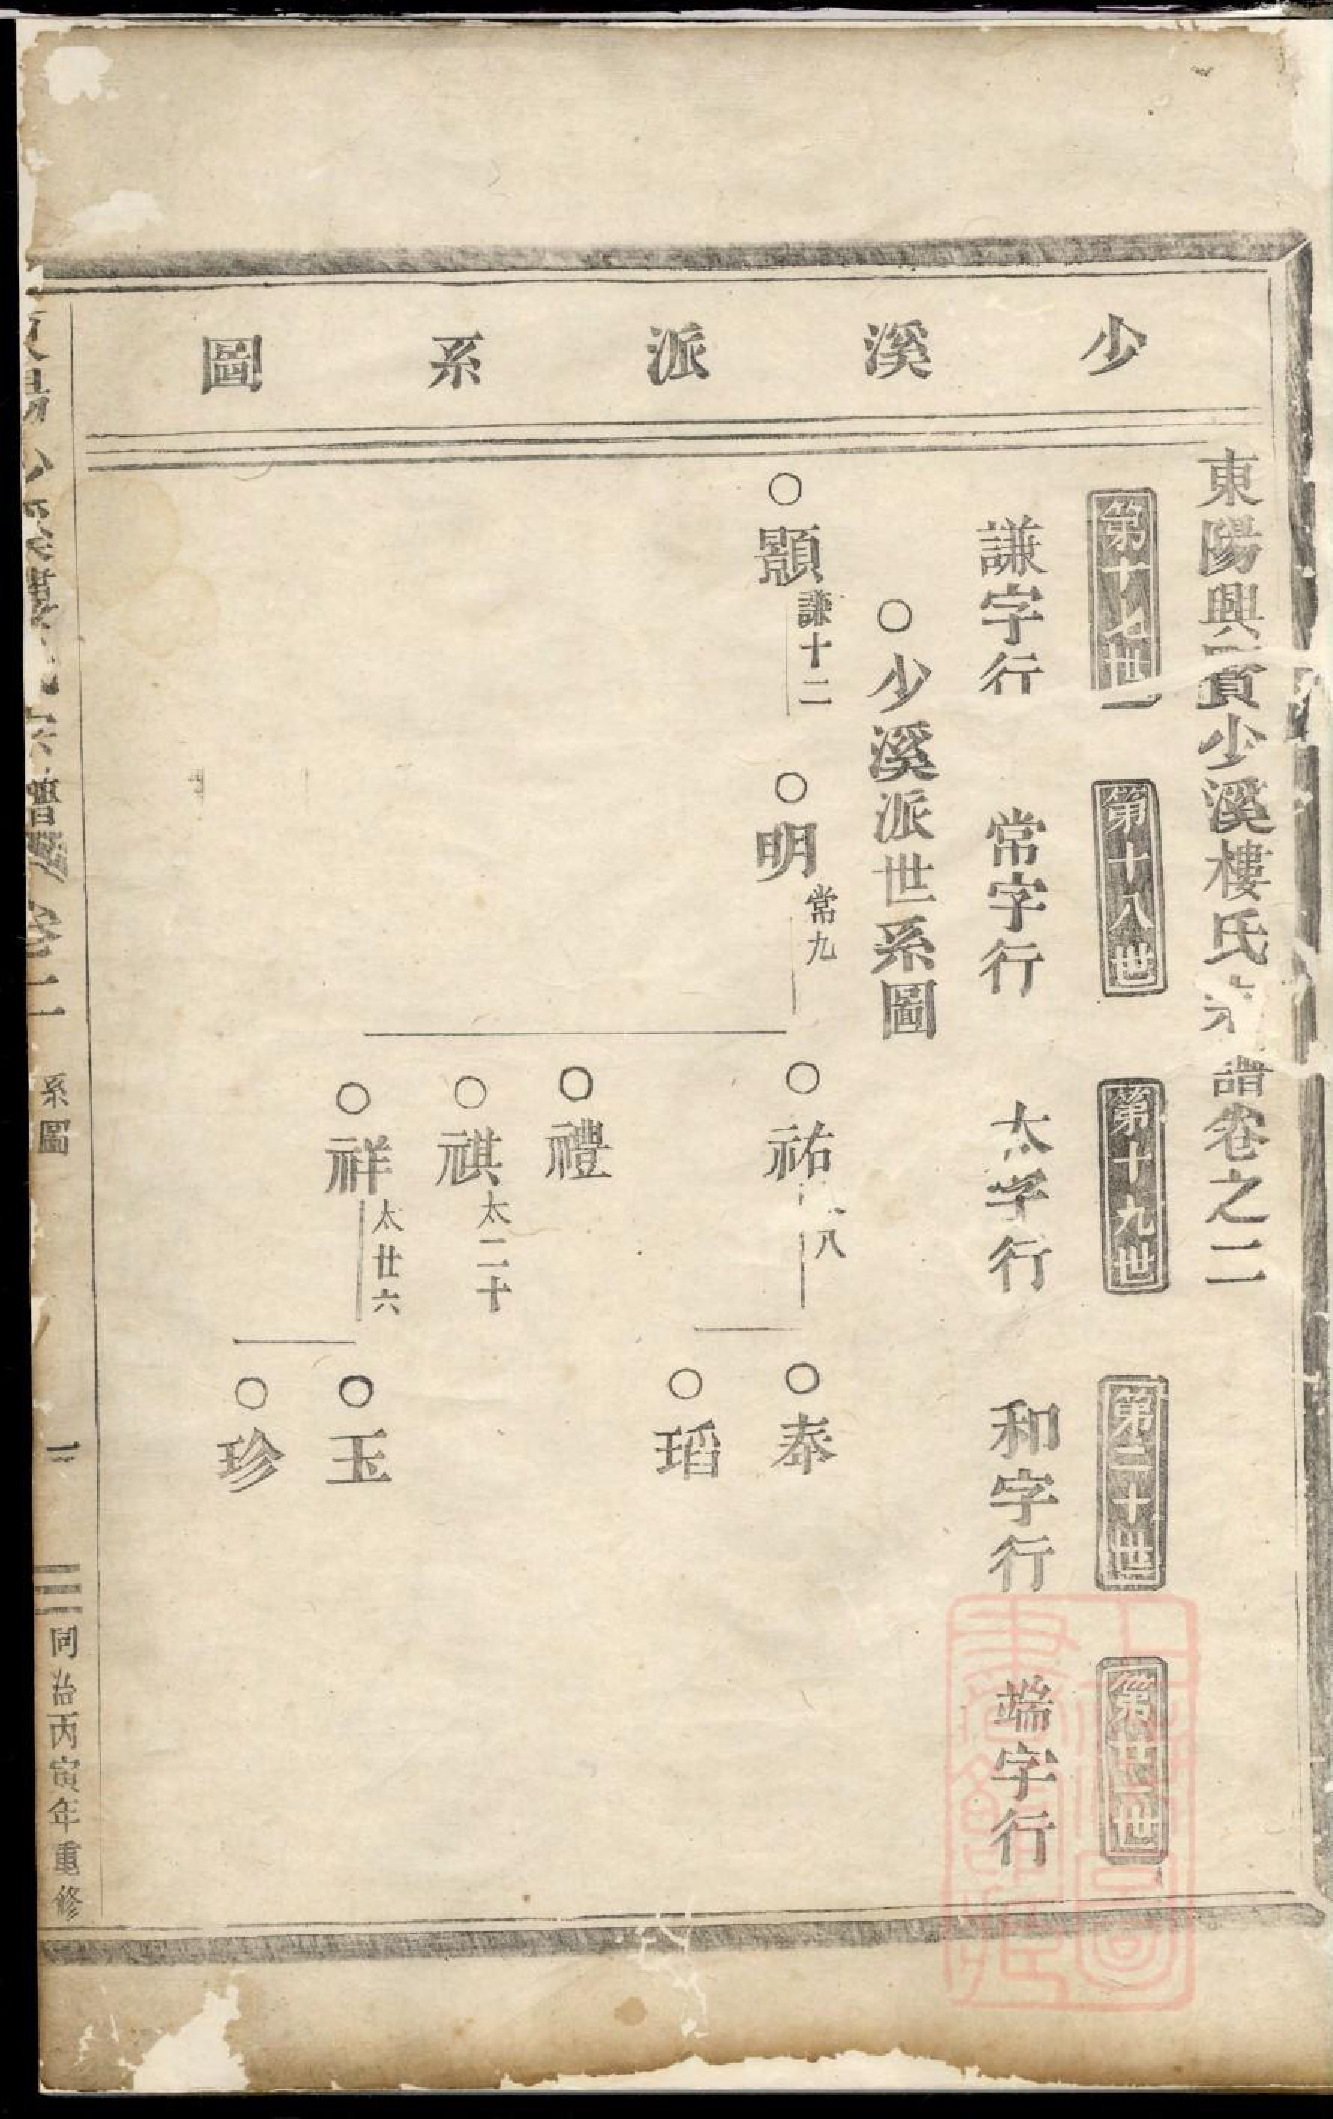 少溪派系圖
東陽興賢少溪樓氏宗譜卷之二
第十七世
第十八世
第十九世
第二十世
第廿一世
謙字行
常字行
太字行
和字行
端字行
○少溪派世系圖
○顥謙十二
○明常九
○祐八
○泰
○瑫
○禮
○祺太二十
○祥太廿六
○玉
○珍
東陽少溪樓氏宗譜
卷二
系圖
一
同治丙寅年重修